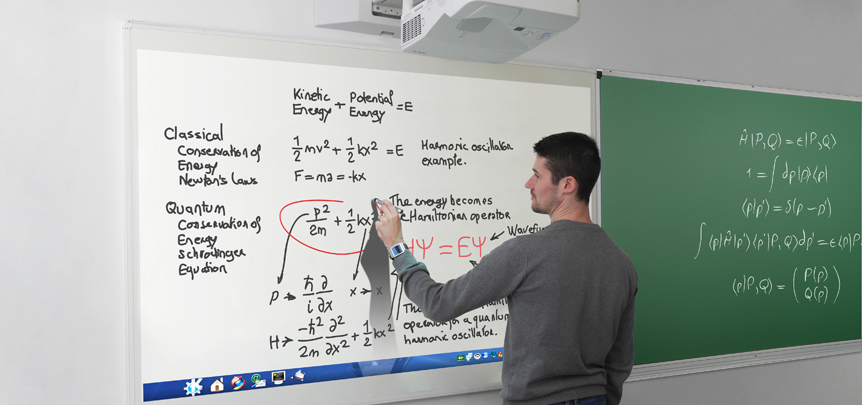 Kinetic Energy + Potential Energy = E
Classical
Conservation of
Energy
Newton's Laws
1/2 mv² + 1/2 kx² = E
F = ma = -kx
Harmonic oscillator
example.
Quantum
Conservation of
Energy
Schrodinger
Equation
p²/2m + 1/2 kx
The energy becomes
Hamiltonian operator
HΨ = EΨ
p → ħ/i ∂/∂x
x → x
H → -ħ²/2m ∂²/∂x² + 1/2 kx²
for a quantum
harmonic oscillator.
Ĥ|P,Q⟩ = ϵ|P,Q⟩
1 = ∫ dp|p⟩⟨p|
⟨p|p'⟩ = δ(p - p')
∫⟨p|Ĥ|p'⟩⟨p'|P,Q⟩dp' = ϵ⟨p|P
⟨p|P,Q⟩ = (P(p) Q(p))